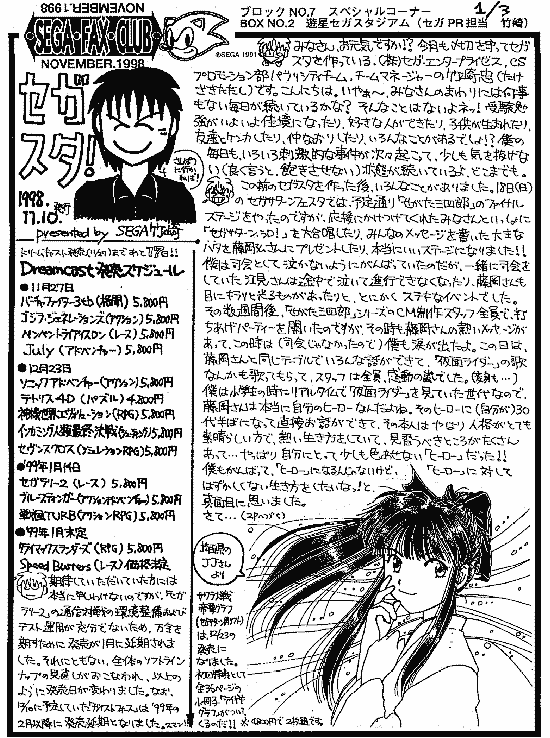 NOVEMBER.1998
SEGA・FAX・CLUB
NOVEMBER.1998
©SEGA 1991
ブロックNO,7 スペシャルコーナー 1/3
BOX NO.2 遊星セガスタジアム (セガPR担当 竹崎)
セガ
スタ!
1998.
11.10.発行
presented by SEGA
みなさん、お元気ですか!? 今月も〆切を守ってセガ
スタを作っている、(株)セガ・エンタープライゼス、CS
プロモーション部パブリシティチーム、チームマネージャーの竹崎忠(たけ
ざきただし)です。こんにちは。いやぁ〜、みなさんのまわりには何事
もない毎日が続いているかな? そんなことはないよネッ! 受験勉
強がいよいよ佳境になったり、好きな人ができたり、子供が生まれたり、
友達とケンカしたり、仲なおりしたり、いろんなことがあるでしょ!? 僕の
毎日も、いろいろ刺激的な事件が次々起こって、少しも気を抜けな
い(良く言うと、飽きさせない)状態が続いているよ、どこまでも。
この前のセガスタを作った後、いろんなことがありました。18日(日)
のセガサターンフェスタでは、予定通り「せがた三四郎」のファイナル
ステージをやったのですが、応援にかけつけてくれたみなさんといっしょに
「セガサターン、シロ!」を大合唱したり、みんなのメッセージを書いた大きな
ハタを藤岡弘さんにプレゼントしたり、本当にいいステージになりました!!
僕は司会として泣かないようにがんばっていたのだが、一緒に司会を
していた江見さんは途中で泣いて進行できなくなったり、藤岡さんも
目にキラリと光るものがあったりと、とにかくステキなイベントでした。
その数週間後、「せがた三四郎」シリーズのCM制作スタッフ全員で、打
ちあげパーティーを開いたのですが、その時も藤岡さんの熱いメッセージが
あって、この時は(司会じゃなかったので)僕も涙が出たよ。この日は、
藤岡さんと同じテーブルでいろんな話ができて、「仮面ライダー」の歌
なんかも歌ってもらって、スタッフは全員、感動の嵐でした。(俊寿も…)
僕は小学生の時にリアルタイムで「仮面ライダー」を見ていた世代なので、
藤岡さんは本当に自分のヒーローなんだよね。そのヒーローに(自分が)30
代半ばになって直接お話ができて、その本人はやはり人格がとても
素晴らしい方で、熱い生き方をしていて、見習うべきところがたくさん
あって…やっぱり自分にとって少しも色あせない「ヒーロー」だった!!
僕もがんばって、「ヒーロー」になるんじゃないけど、「ヒーロー」に対して
はずかしくない生き方をしたいな…!と、
真面目に思いました。
さて…(2Pへつづく)
Dreamcast発売スケジュール
●11月27日
バーチャファイター3tb(格闘) 5,800円
ゴジラ・ジェネレーションズ(アクション) 5,800円
ペンペントライアイスロン(レース) 5,800円
July(アドベンチャー) 5,800円
●12月23日
ソニックアドベンチャー(アクション) 5,800円
テトリス4D(パズル) 4,800円
神機世界エヴォリューション(RPG) 5,800円
インカミング人類最終決戦(シューティング) 5,800円
セヴンスクロス(シミュレーションRPG) 5,800円
●'99年1月14日
セガラリー2(レース) 5,800円
ブルースティンガー(アクションアドベンチャー) 5,800円
戦国TURB(アクションRPG) 5,800円
●'99年1月末定
クライマックスランダーズ(RPG) 5,800円
Speed Busters(レース) 価格未定
期待していただいていた方には
本当に申しわけないのですが、「セガ
ラリー2」の通信対戦等の環境整備および
テスト運用が充分でないため、万全を
期すために発売が1月に延期されま
した。それにともない、全体のソフトライン
ナップの見直しがおこなわれ、以上の
ように発売日が変わりました。なお、
2月以降に発売延期となりました。スマン!
埼玉県の
JJさん
より
サクラ大戦
帝撃グラフ
(セガサターン用ソフト)
は、12/23の
発売に
なりました。
初回特典として
全36ページの
グラフがついて
くるのだ!! ※4,800円で2枚組です。